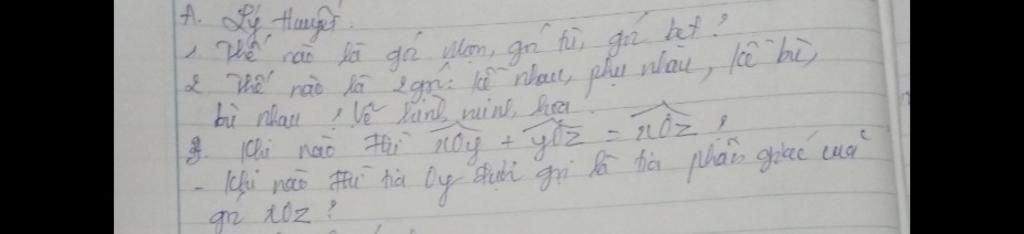 A. Lý thuyết.
1, Thế nào là góc nhọn, góc tù, góc bẹt?
2 Thế nào là 2 góc: kề nhau, phụ nhau, kề bù,
bù nhau, vẽ hình minh họa.
3. Khi nào thì xOy + yOz = xOz?
- Khi nào thì tia Oy được gọi là tia phân giác của
góc xOz?